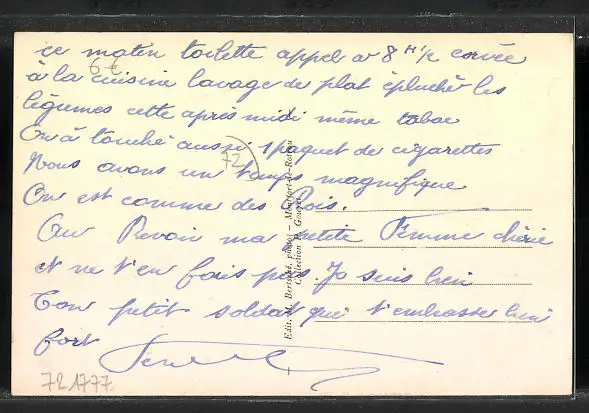 ce maten toilette appel a 8 H 1/2 corvée
à la cuisine lavage de plat éplucher les
légumes cette après midi même tabac
On à touché aussi 1 paquet de cigarettes
Nous avons un temps magnifique
On est comme des Rois.
Au Revoir ma petite Femme chérie
et ne t'en fais pas. Je suis bien
Ton petit soldat qui t'embrasse bien
fort
6 €
72
721777
Edit. M. Bertschi, photo - Montfort-le-Rotrou
Collection P. Goupil